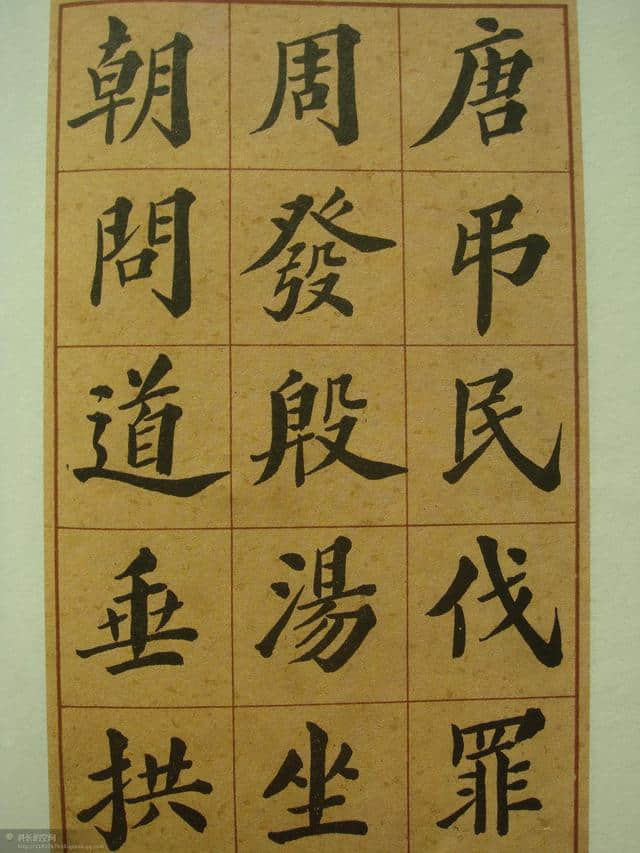 唐弔民伐罪
周發殷湯坐
朝問道垂拱